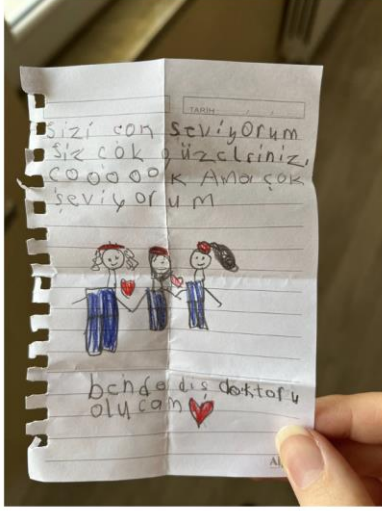 TARİH
Sizi çok seviyorum
Siz çok güzelsiniz,
COOOOOK Ama çok
seviyorum
bende diş doktoru
olucam